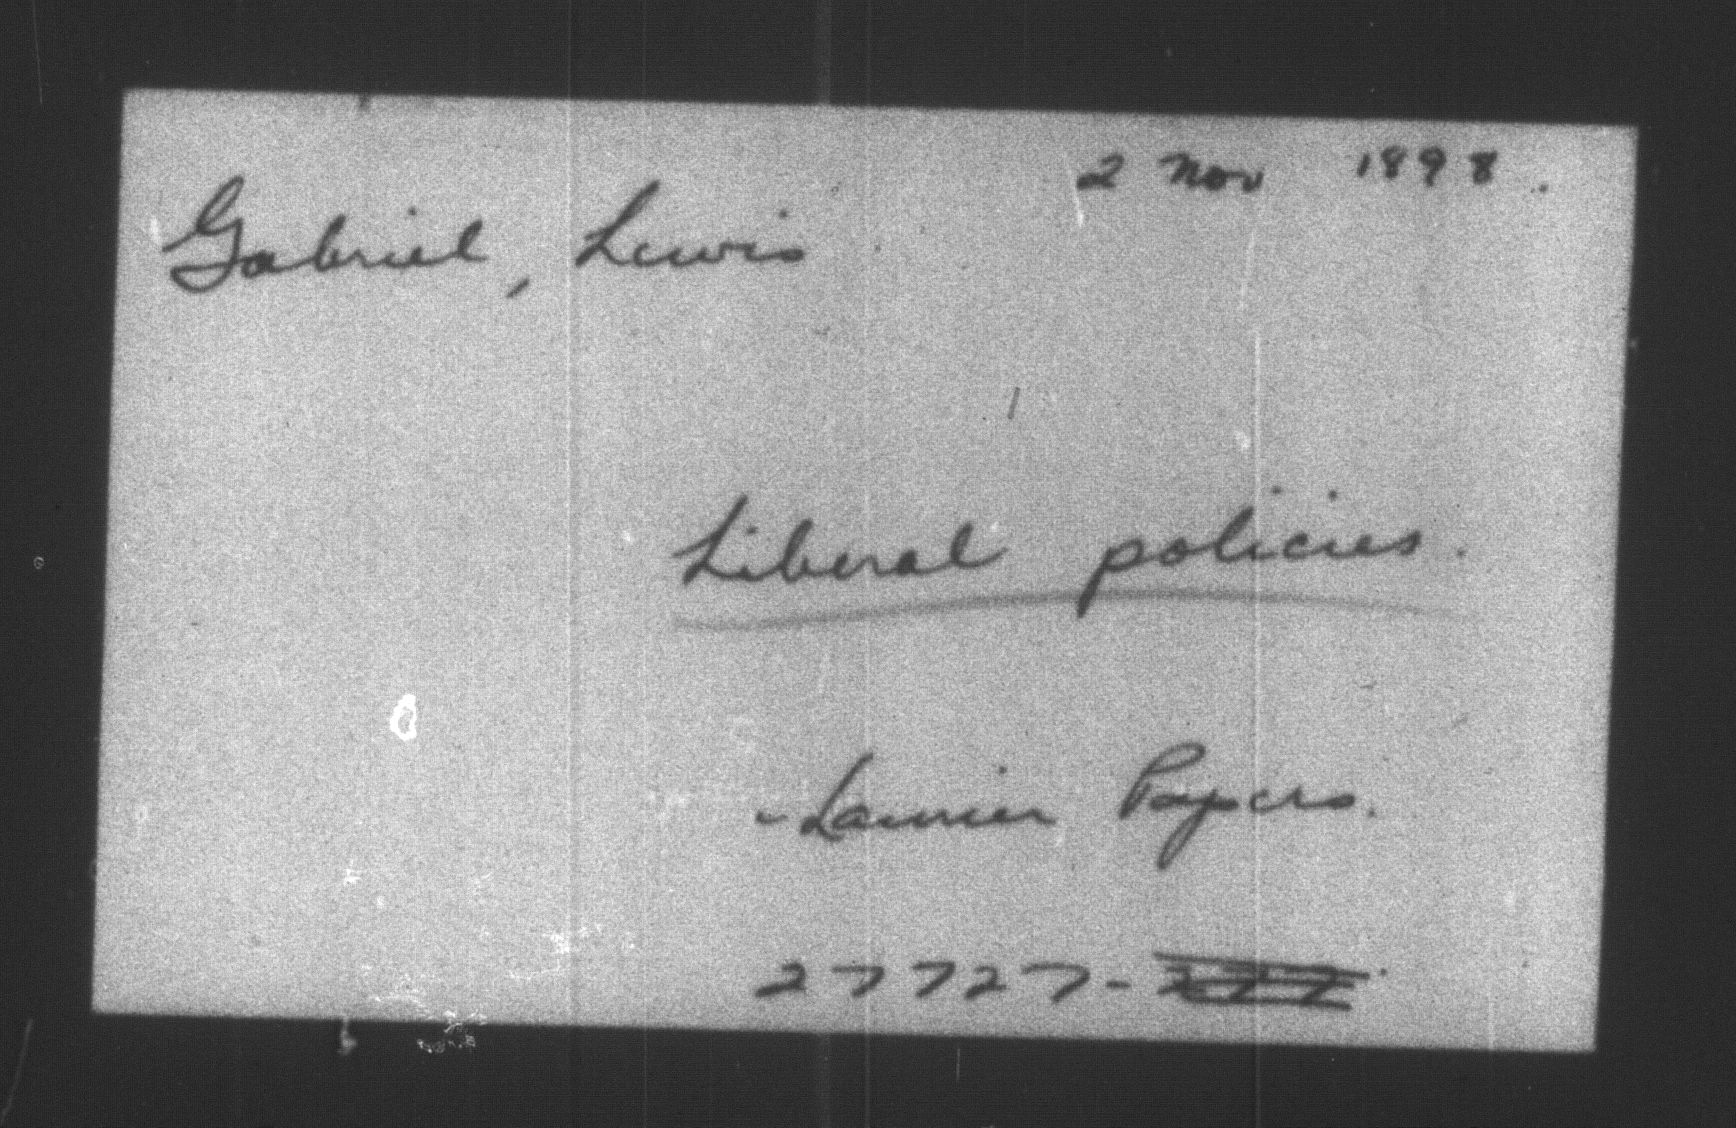 2 Nov 1898.
Gabriel, Lewis
Liberal policies.
- Laurier Papers.
27727-